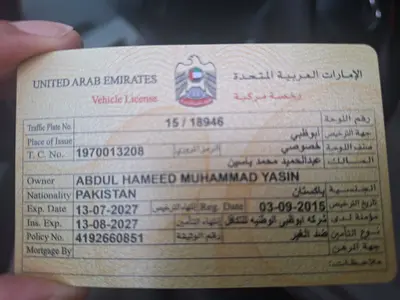 UNITED ARAB EMIRATES الإمارات العربية المتحدة
Vehicle License رخصة مركبة
Traffic Plate No 15 / 18946 رقم اللوحة
Place of Issue أبوظبي جهة الترخيص
T. C. No. 1970013208 الرمز المروري خصوصي صنف اللوحة
عبدالحميد محمد ياسين المالك
Owner ABDUL HAMEED MUHAMMAD YASIN
Nationality PAKISTAN باكستان الجنسية
Exp. Date 13-07-2027 إنتهاء الترخيص Reg. Date 03-09-2015 تاريخ الترخيص
Ins. Exp. 13-08-2027 إنتهاء التأمين شركه ابوظبي الوطنيه للتكافل مؤمنة لدى
Policy No. 4192660851 رقم الوثيقة ضد الغير نوع التأمين
Mortgage By جهة الرهن
ملاحظات: